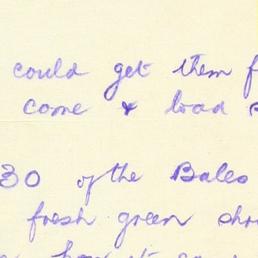 could get them f
come & load
30 of the Bales
fresh green sho